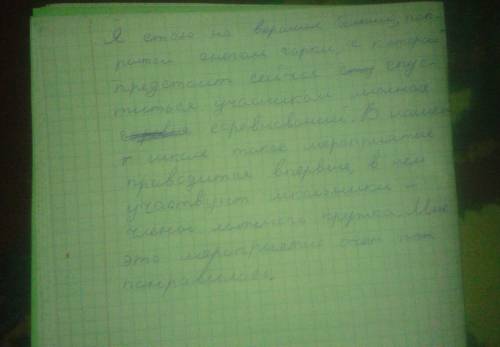 Я стою на вершине большой, пок-
рытой снегом горки, с которой
предстоит сейчас спус-
титься участникам лыжных
соревнований. В нашей
школе такое мероприятие
проводится впервые, в нем
участвуют школьники -
члены лыжного кружка. Мне
это мероприятие
понравилось.